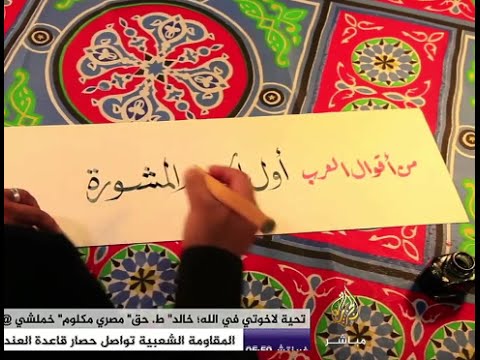 من أقوال العرب أول المشورة
الجزيرة
مباشر
تحية لاخوتي في الله؛ خالد" ط. حق" مصري مكلوم" خملشي @
المقاومة الشعبية تواصل حصار قاعدة العند